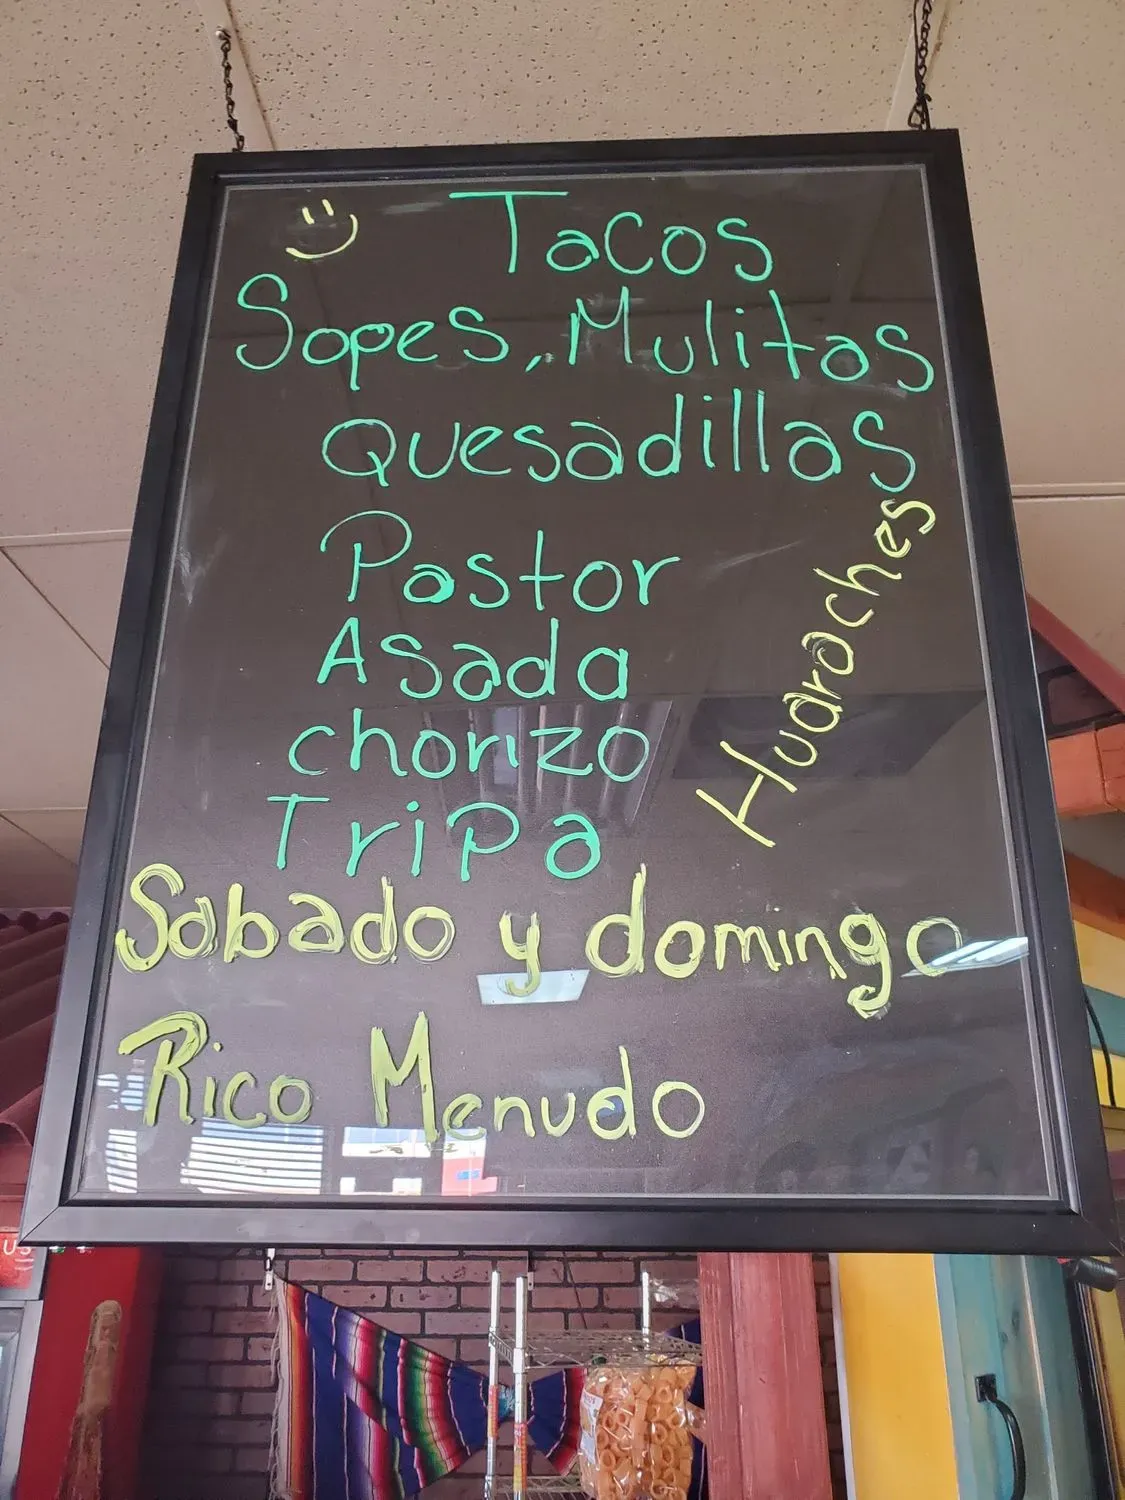 Tacos
Sopes, Mulitas
Quesadillas
Pastor
Asada
chorizo
Tripa
Huaraches
Sabado y domingo
Rico Menudo
US